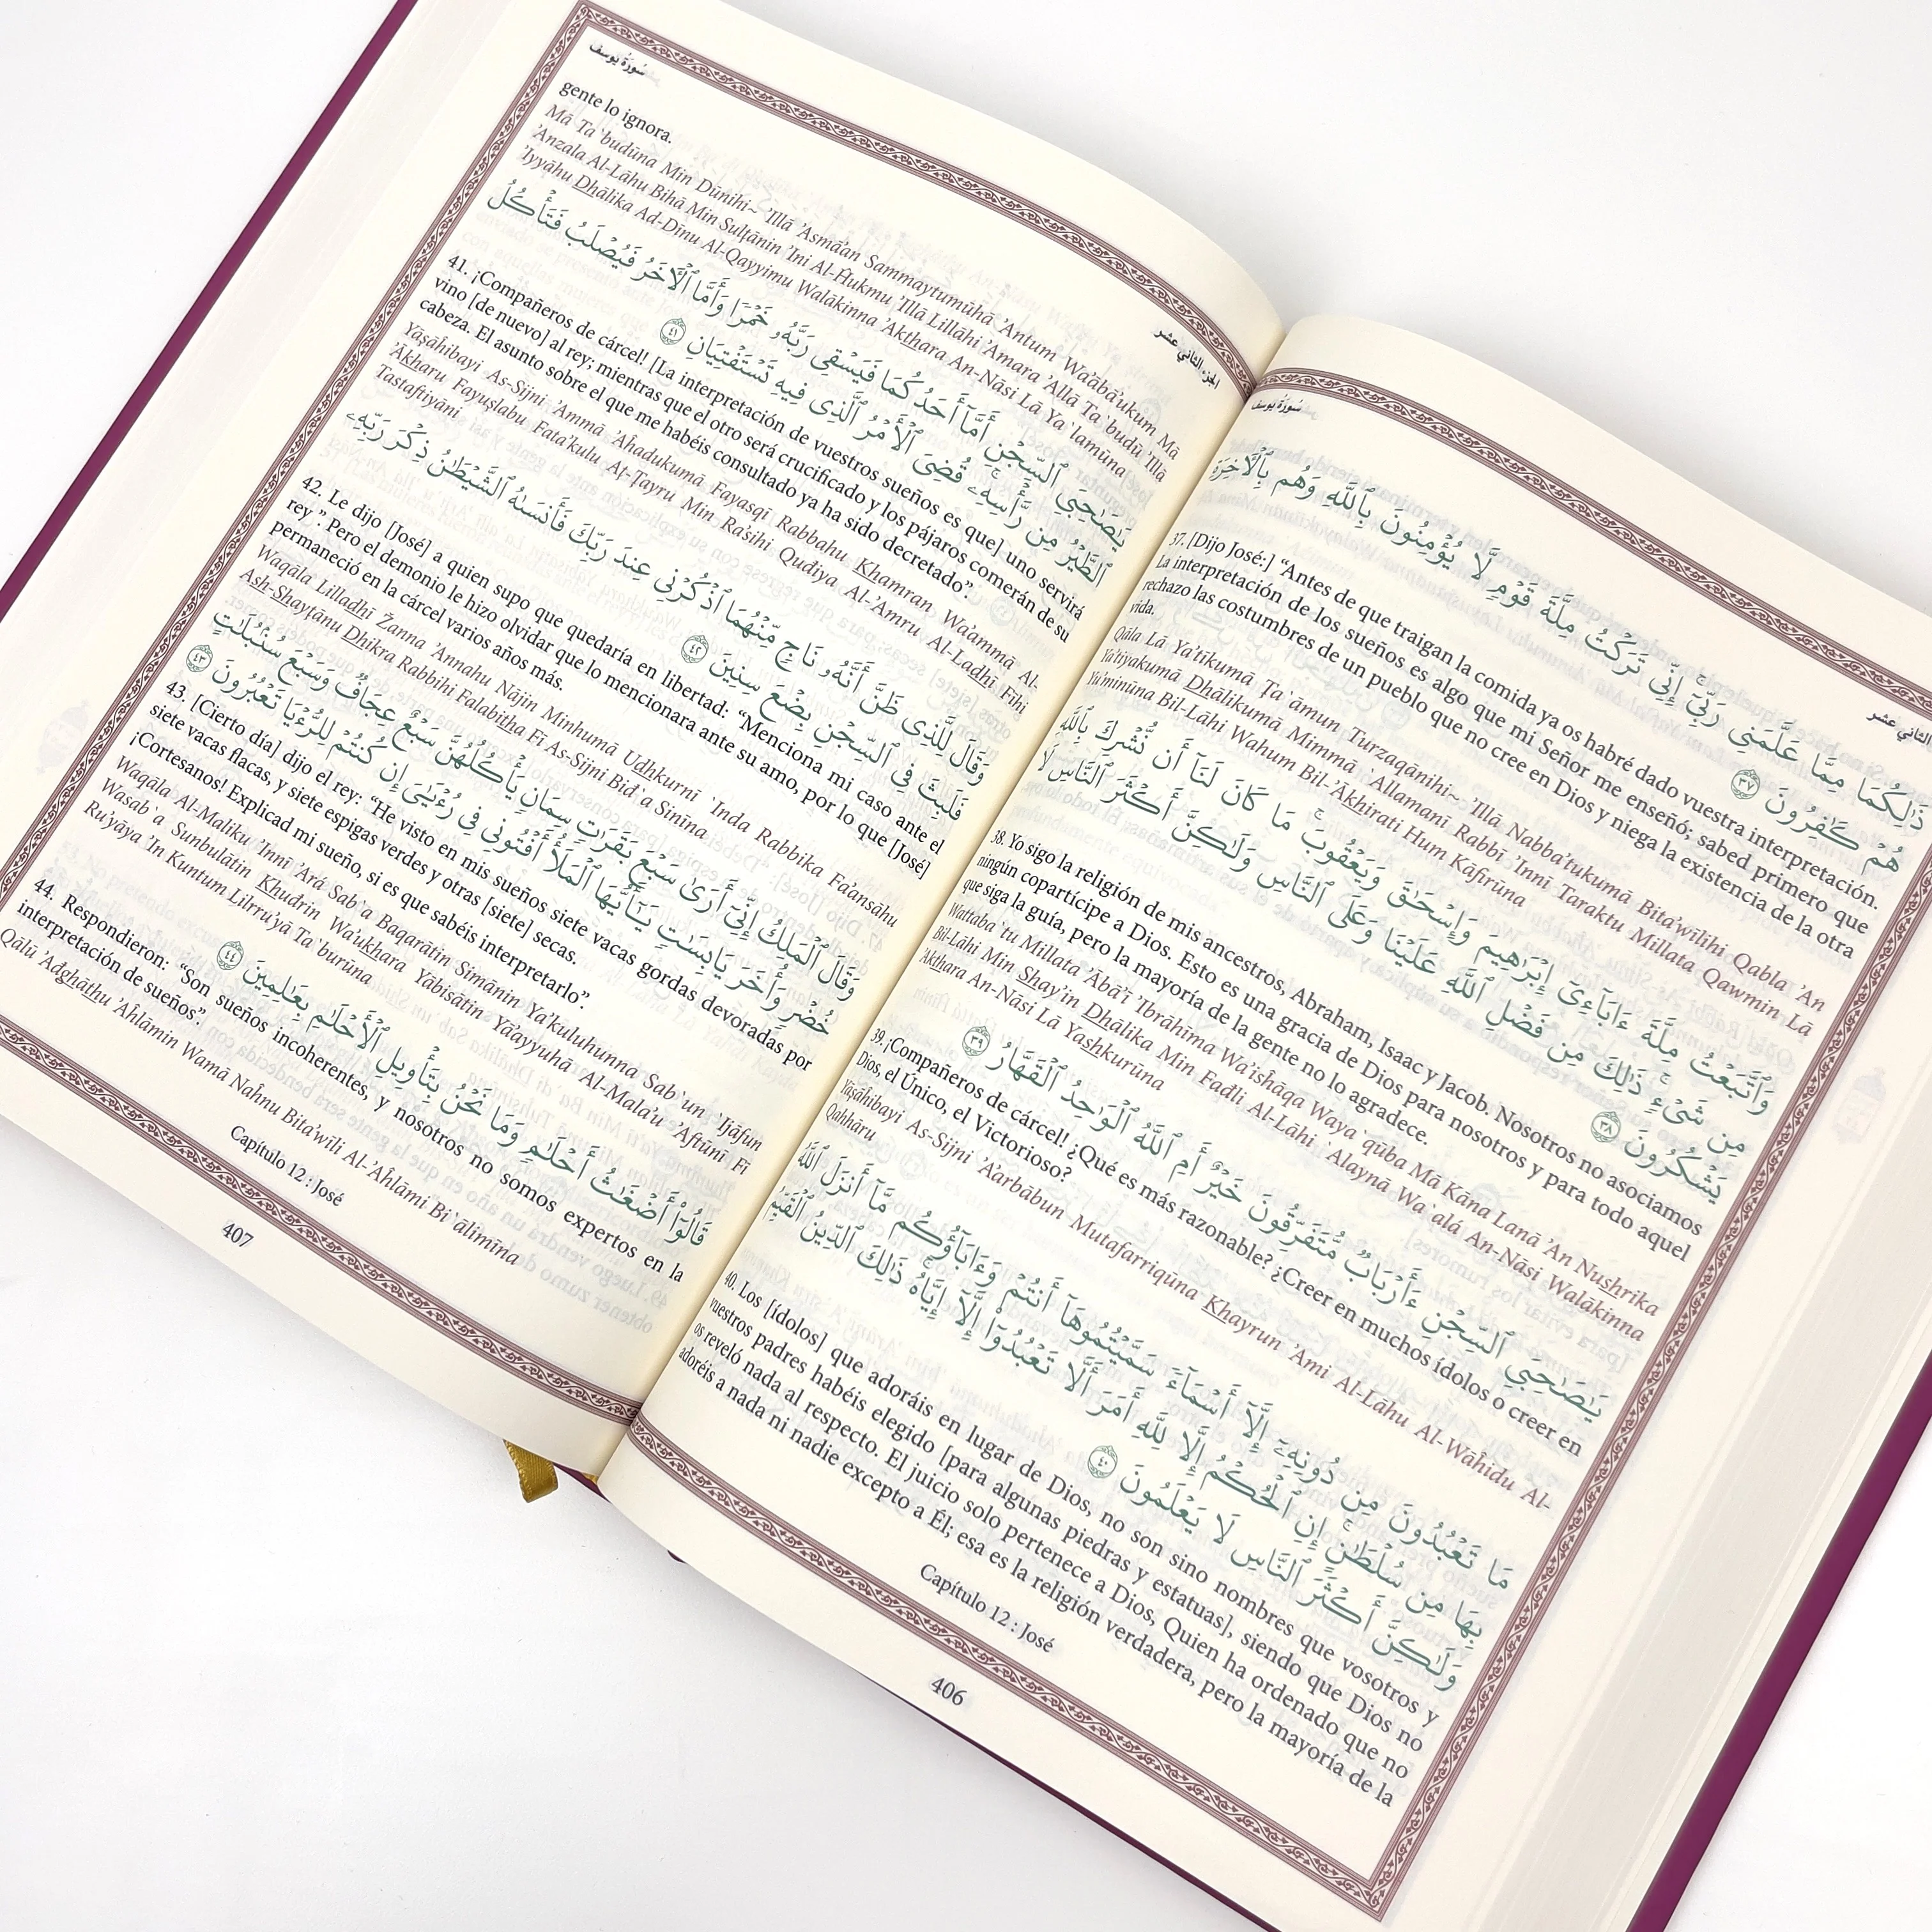 سُورَةُ يُوسُف
الثاني عشر
ذَٰلِكُمَا مِمَّا عَلَّمَنِي رَبِّيٓ ۚ إِنِّي تَرَكْتُ مِلَّةَ قَوْمٍ لَّا يُؤْمِنُونَ بِٱللَّهِ وَهُم بِٱلْآخِرَةِ
هُمْ كَٰفِرُونَ ٣٧
37. [Dijo José:] “Antes de que traigan la comida ya os habré dado vuestra interpretación.
La interpretación de los sueños es algo que mi Señor me enseñó; sabed primero que
rechazo las costumbres de un pueblo que no cree en Dios y niega la existencia de la otra
vida.
Qāla Lā Ya'tīkumā Ţa`āmun Turzaqānihi~ 'Illā Nabba'tukumā Bita'wīlihi Qabla 'An
Ya'tiyakumā Dhālikumā Mimmā `Allamanī Rabbī 'Innī Taraktu Millata Qawmin Lā
Yu'minūna Bil-Lāhi Wahum Bil-'Ākhirati Hum Kāfirūna
وَٱتَّبَعْتُ مِلَّةَ ءَابَآءِيٓ إِبْرَٰهِيمَ وَإِسْحَٰقَ وَيَعْقُوبَ ۚ مَا كَانَ لَنَآ أَن نُّشْرِكَ بِٱللَّهِ
مِن شَيْءٍ ۚ ذَٰلِكَ مِن فَضْلِ ٱللَّهِ عَلَيْنَا وَعَلَى ٱلنَّاسِ وَلَٰكِنَّ أَكْثَرَ ٱلنَّاسِ لَا
يَشْكُرُونَ ٣٨
38. Yo sigo la religión de mis ancestros, Abraham, Isaac y Jacob. Nosotros no asociamos
ningún copartícipe a Dios. Esto es una gracia de Dios para nosotros y para todo aquel
que siga la guía, pero la mayoría de la gente no lo agradece.
Wattaba`tu Millata 'Ābā'ī 'Ibrāhīma Wa'isĥāqa Waya`qūba Mā Kāna Lanā 'An Nushrika
Bil-Lāhi Min Shay'in Dhālika Min Fadli Al-Lāhi `Alaynā Wa`alá An-Nāsi Walākinna
'Akthara An-Nāsi Lā Yashkurūna
يَٰصَٰحِبَيِ ٱلسِّجْنِ ءَأَرْبَابٌ مُّتَفَرِّقُونَ خَيْرٌ أَمِ ٱللَّهُ ٱلْوَٰحِدُ ٱلْقَهَّارُ ٣٩
39. ¡Compañeros de cárcel! ¿Qué es más razonable? ¿Creer en muchos ídolos o creer en
Dios, el Único, el Victorioso?
Yāşāhibayi As-Sijni 'A'arbābun Mutafarriqūna Khayrun 'Ami Al-Lāhu Al-Wāĥidu Al-
Qahhāru
مَا تَعْبُدُونَ مِن دُونِهِۦٓ إِلَّآ أَسْمَآءً سَمَّيْتُمُوهَآ أَنتُمْ وَءَابَآؤُكُم مَّآ أَنزَلَ ٱللَّهُ
بِهَا مِن سُلْطَٰنٍ ۚ إِنِ ٱلْحُكْمُ إِلَّا لِلَّهِ ۚ أَمَرَ أَلَّا تَعْبُدُوٓا۟ إِلَّآ إِيَّاهُ ۚ ذَٰلِكَ ٱلدِّينُ ٱلْقَيِّمُ
وَلَٰكِنَّ أَكْثَرَ ٱلنَّاسِ لَا يَعْلَمُونَ ٤٠
40. Los [ídolos] que adoráis en lugar de Dios, no son sino nombres que vosotros y
vuestros padres habéis elegido [para algunas piedras y estatuas], siendo que Dios no
os reveló nada al respecto. El juicio solo pertenece a Dios, Quien ha ordenado que no
adoréis a nada ni nadie excepto a Él; esa es la religión verdadera, pero la mayoría de la
Capítulo 12 : José
406
سُورَةُ يُوسُف
الجزء الثاني عشر
gente lo ignora.
Mā Ta`budūna Min Dūnihi~ 'Illā 'Asmā'an Sammaytumūhā 'Antum Wa'ābā'ukum Mā
'Anzala Al-Lāhu Bihā Min Sulţānin 'Ini Al-Ĥukmu 'Illā Lillāhi 'Amara 'Allā Ta`budū 'Illā
'Iyyāhu Dhālika Ad-Dīnu Al-Qayyimu Walākinna 'Akthara An-Nāsi Lā Ya`lamūna
يَٰصَٰحِبَيِ ٱلسِّجْنِ أَمَّآ أَحَدُكُمَا فَيَسْقِي رَبَّهُۥ خَمْرًا ۖ وَأَمَّا ٱلْآخَرُ فَيُصْلَبُ فَتَأْكُلُ
ٱلطَّيْرُ مِن رَّأْسِهِۦ ۚ قُضِيَ ٱلْأَمْرُ ٱلَّذِي فِيهِ تَسْتَفْتِيَانِ ٤١
41. ¡Compañeros de cárcel! [La interpretación de vuestros sueños es que] uno servirá
vino [de nuevo] al rey; mientras que el otro será crucificado y los pájaros comerán de su
cabeza. El asunto sobre el que me habéis consultado ya ha sido decretado”.
Yāşāhibayi As-Sijni 'Ammā 'Aĥadukumā Fayasqī Rabbahu Khamran Wa'ammā Al-
'Ākharu Fayuşlabu Fata'kulu Aţ-Ţayru Min Ra'sihi Qudiya Al-'Amru Al-Ladhī Fīhi
Tastaftiyāni
وَقَالَ لِلَّذِي ظَنَّ أَنَّهُۥ نَاجٍ مِّنْهُمَا ٱذْكُرْنِي عِندَ رَبِّكَ فَأَنسَىٰهُ ٱلشَّيْطَٰنُ ذِكْرَ رَبِّهِۦ
فَلَبِثَ فِي ٱلسِّجْنِ بِضْعَ سِنِينَ ٤٢
42. Le dijo [José] a quien supo que quedaría en libertad: “Menciona mi caso ante el
rey”. Pero el demonio le hizo olvidar que lo mencionara ante su amo, por lo que [José]
permaneció en la cárcel varios años más.
Waqāla Lilladhī Žanna 'Annahu Nājin Minhumā Udhkurnī `Inda Rabbika Fa'ansāhu
Ash-Shayţānu Dhikra Rabbihi Falabitha Fī As-Sijni Bid`a Sinīna
وَقَالَ ٱلْمَلِكُ إِنِّيٓ أَرَىٰ سَبْعَ بَقَرَٰتٍ سِمَانٍ يَأْكُلُهُنَّ سَبْعٌ عِجَافٌ وَسَبْعَ سُنۢبُلَٰتٍ
خُضْرٍ وَأُخَرَ يَابِسَٰتٍ ۖ يَٰٓأَيُّهَا ٱلْمَلَأُ أَفْتُونِي فِي رُءْيَٰيَ إِن كُنتُمْ لِلرُّءْيَا تَعْبُرُونَ ٤٣
43. [Cierto día] dijo el rey: “He visto en mis sueños siete vacas gordas devoradas por
siete vacas flacas, y siete espigas verdes y otras [siete] secas.
¡Cortesanos! Explicad mi sueño, si es que sabéis interpretarlo”.
Waqāla Al-Maliku 'Innī 'Ará Sab`a Baqarātin Simānin Ya'kuluhunna Sab`un `Ijāfun
Wasab`a Sunbulātin Khudrin Wa'ukhara Yābisātin Yā'ayyuhā Al-Mala'u 'Aftūnī Fī
Ru'yāya 'In Kuntum Lilrru'yā Ta`burūna
قَالُوٓا۟ أَضْغَٰثُ أَحْلَٰمٍ ۖ وَمَا نَحْنُ بِتَأْوِيلِ ٱلْأَحْلَٰمِ بِعَٰلِمِينَ ٤٤
44. Respondieron: “Son sueños incoherentes, y nosotros no somos expertos en la
interpretación de sueños”.
Qālū 'Adghāthu 'Aĥlāmin Wamā Naĥnu Bita'wīli Al-'Aĥlāmi Bi`ālimīna
Capítulo 12 : José
407